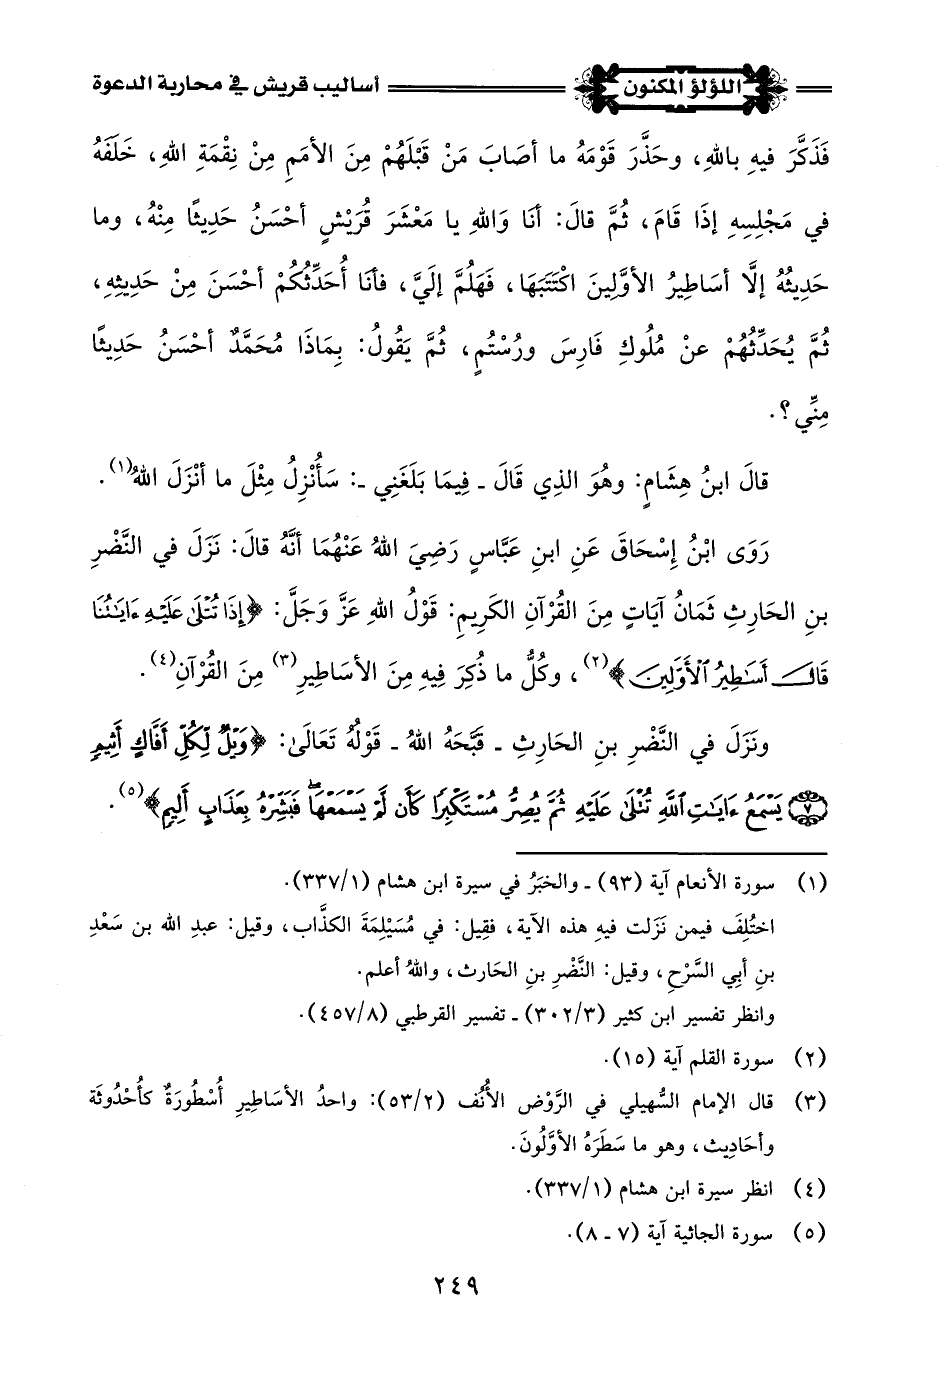 اللؤلؤ المكنون أساليب قريش في محاربة الدعوة
فَذَكَّرَ فيهِ باللهِ، وحَذَّرَ قَوْمَهُ ما أصَابَ مَنْ قَبْلَهُمْ مِنَ الأمَمِ مِنْ نِقْمَةِ اللهِ، خَلَفَهُ
في مَجْلِسِهِ إذَا قَامَ، ثُمَّ قالَ: أنَا وَاللهِ يا مَعْشَرَ قُرَيْشٍ أحْسَنُ حَدِيثًا مِنْهُ، وما
حَدِيثُهُ إلَّا أسَاطِيرُ الأوَّلِينَ اكْتَتَبَهَا، فَهَلُمَّ إلَيَّ، فأنَا أُحَدِّثُكُمْ أحْسَنَ مِنْ حَدِيثِهِ،
ثُمَّ يُحَدِّثُهُمْ عنْ مُلُوكِ فَارِسَ ورُسْتُمٍ، ثُمَّ يَقُولُ: بِمَاذَا مُحَمَّدٌ أحْسَنُ حَدِيثًا
مِنِّي؟.
قالَ ابنُ هِشَامٍ: وهُوَ الذِي قَالَ ـ فِيمَا بَلَغَنِي ـ: سَأُنْزِلُ مِثْلَ ما أنْزَلَ اللهُ(١).
رَوَى ابْنُ إِسْحَاقَ عَنِ ابنِ عَبَّاسٍ رَضِيَ اللهُ عَنْهُمَا أنَّهُ قالَ: نَزَلَ في النَّضْرِ
بنِ الحَارِثِ ثَمَانُ آيَاتٍ مِنَ القُرْآنِ الكَرِيمِ: قَوْلُ اللهِ عَزَّ وَجَلَّ: ﴿إِذَا تُتْلَىٰ عَلَيْهِ ءَايَـٰتُنَا
قَالَ أَسَـٰطِيرُ ٱلْأَوَّلِينَ﴾(٢)، وكُلُّ ما ذُكِرَ فِيهِ مِنَ الأسَاطِيرِ(٣) مِنَ القُرْآنِ(٤).
ونَزَلَ في النَّضْرِ بنِ الحَارِثِ ـ قَبَّحَهُ اللهُ ـ قَوْلُهُ تَعَالَىٰ: ﴿وَيْلٌ لِّكُلِّ أَفَّاكٍ أَثِيمٍ
٧ يَسْمَعُ ءَايَـٰتِ ٱللَّهِ تُتْلَىٰ عَلَيْهِ ثُمَّ يُصِرُّ مُسْتَكْبِرًا كَأَن لَّمْ يَسْمَعْهَا ۖ فَبَشِّرْهُ بِعَذَابٍ أَلِيمٍ﴾(٥).
(١) سورة الأنعام آية (٩٣) ـ والخبَرُ في سيرة ابن هشام (٣٣٧/١).
اختُلِفَ فيمن نَزَلت فيهِ هذه الآية، فقِيل: في مُسَيْلِمَةَ الكذَّاب، وقيل: عبدِ الله بن سَعْدِ
بنِ أبي السَّرْحِ، وقيل: النَّضْرِ بنِ الحَارث، واللهُ أعلم.
وانظر تفسير ابن كثير (٣٠٢/٣) ـ تفسير القرطبي (٤٥٧/٨).
(٢) سورة القلم آية (١٥).
(٣) قال الإمام السُّهيلي في الرَّوْض الأُنُف (٥٣/٢): واحدُ الأسَاطِيرِ أُسْطُورَةٌ كأُحْدُوثَة
وأحَادِيث، وهو ما سَطَرَهُ الأوَّلُونَ.
(٤) انظر سيرة ابن هشام (٣٣٧/١).
(٥) سورة الجاثية آية (٧ ـ ٨).
٢٤٩